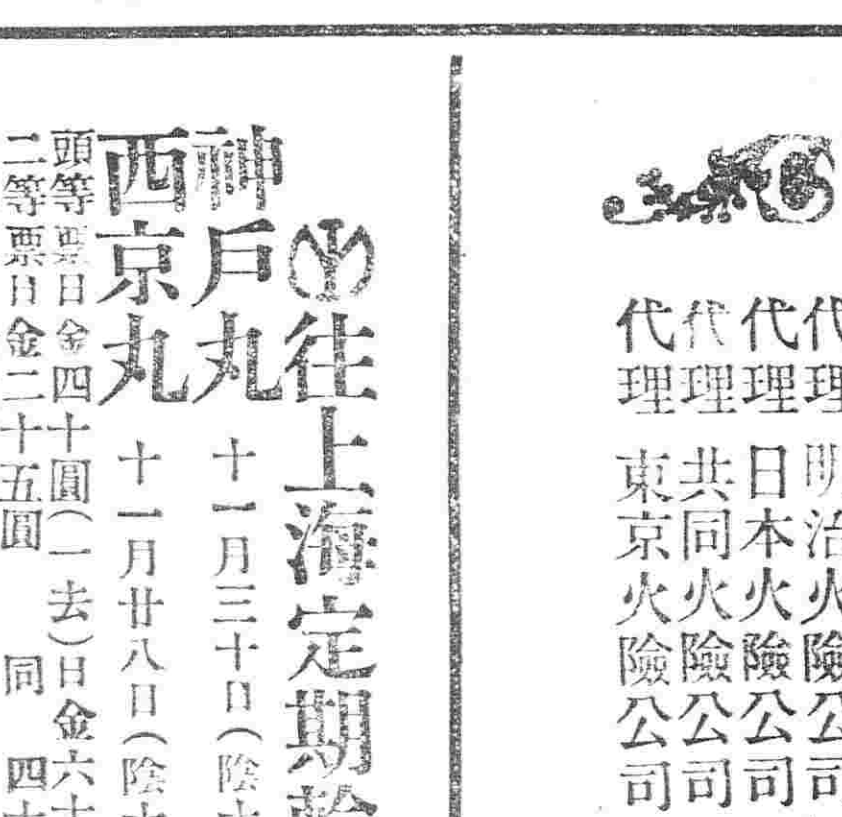 代理 明治火險公司
代理 日本火險公司
代理 共同火險公司
代理 東京火險公司
往上海定期
神戶丸 十一月三十日(陰
西京丸 十一月廿八日(陰十
頭等票日金四十圓(一去)日金六十
二等票日金二十五圓 同 四十